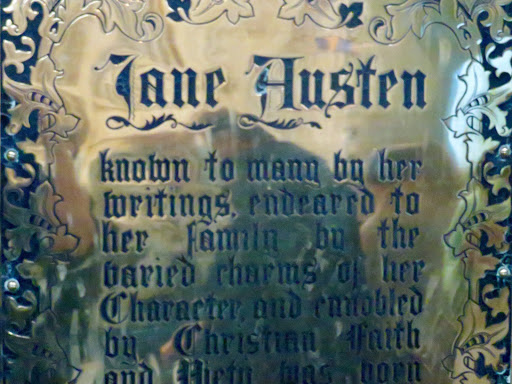 Jane Austen
known to many by her
writings, endeared to
her family by the
varied charms of her
Character, and ennobled
by Christian Faith
and Piety, was born